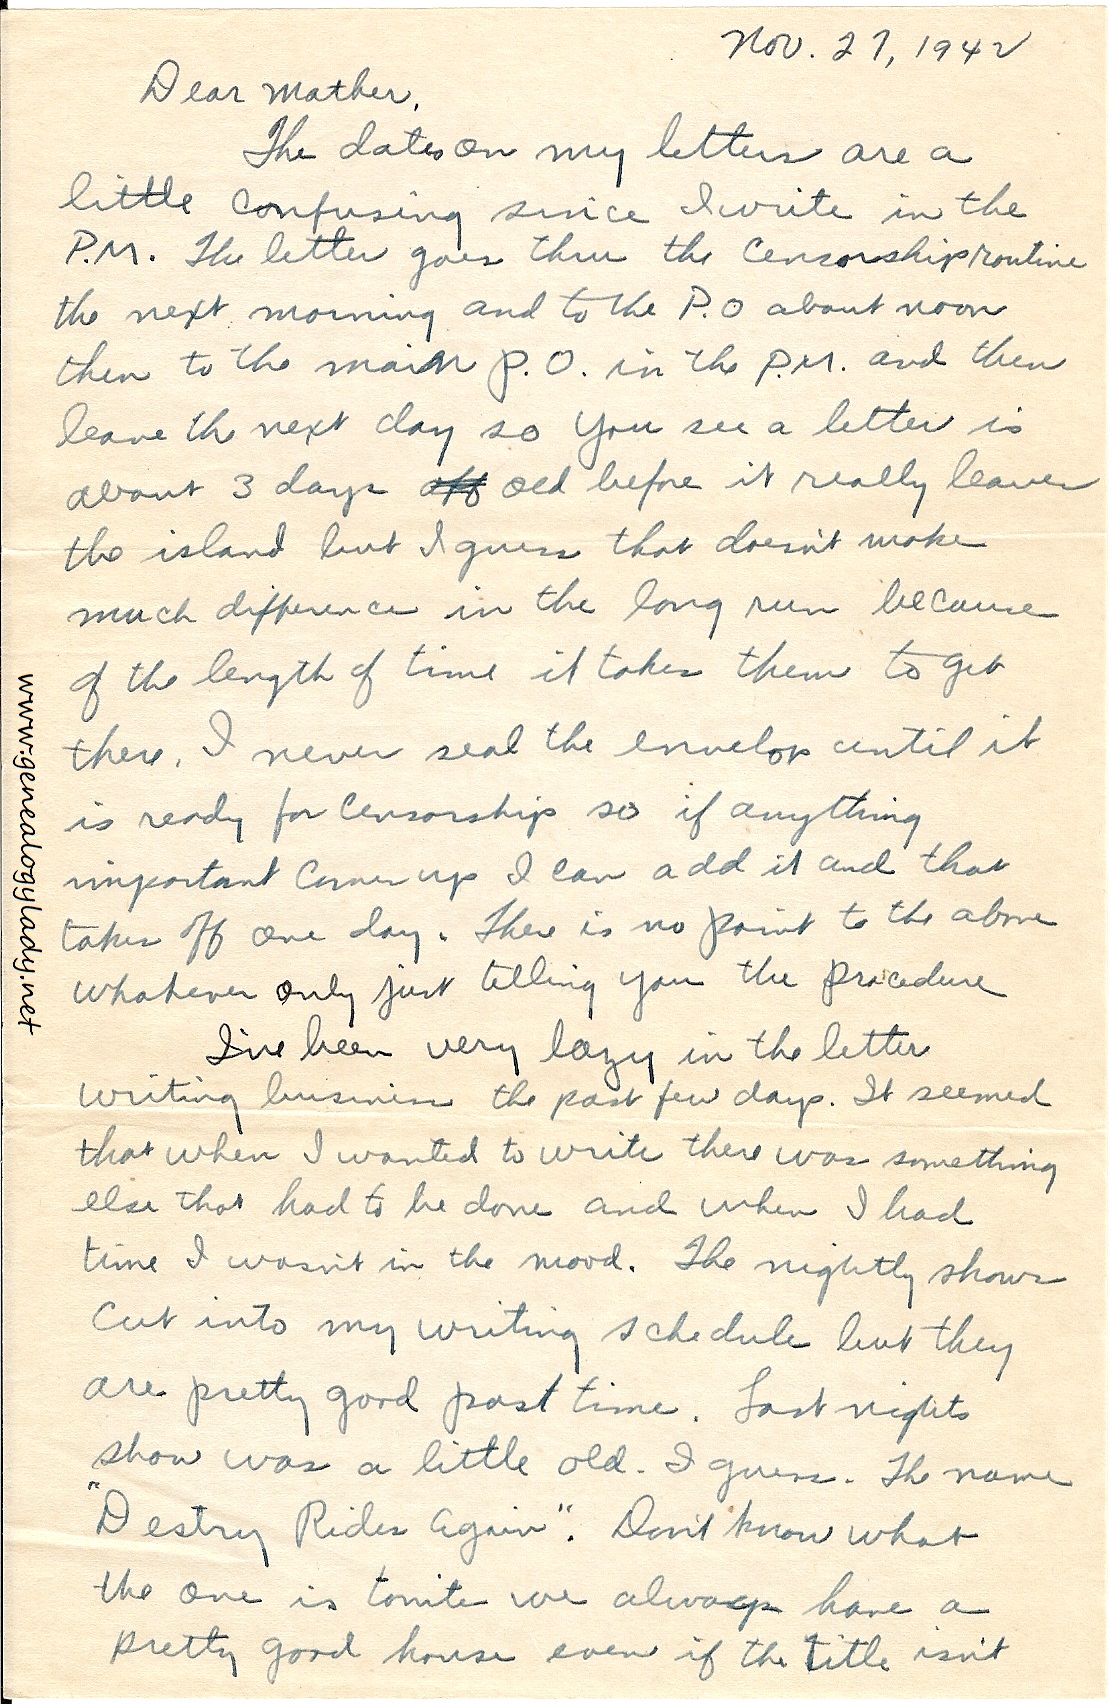 Nov. 27, 1942
Dear Mother,
The dates on my letters are a
little confusing since I write in the
P.M. The letter goes thru the censorship routine
the next morning and to the P.O about noon
then to the main P.O. in the P.M. and then
leave the next day so you see a letter is
about 3 days off old before it really leaves
the island but I guess that doesn't make
much difference in the long run because
of the length of time it takes them to get
there. I never seal the envelop until it
is ready for censorship so if anything
important comes up I can add it and that
takes off one day. There is no point to the above
whatever only just telling you the procedure
I've been very lazy in the letter
writing business the past few days. It seemed
that when I wanted to write there was something
else that had to be done and when I had
time I wasn't in the mood. The nightly shows
cut into my writing schedule but they
are pretty good past time. Last nights
show was a little old. I guess. The name
"Destry Rides Again". Don't know what
the one is tonite we always have a
pretty good house even if the title isn't
www.genealogylady.net